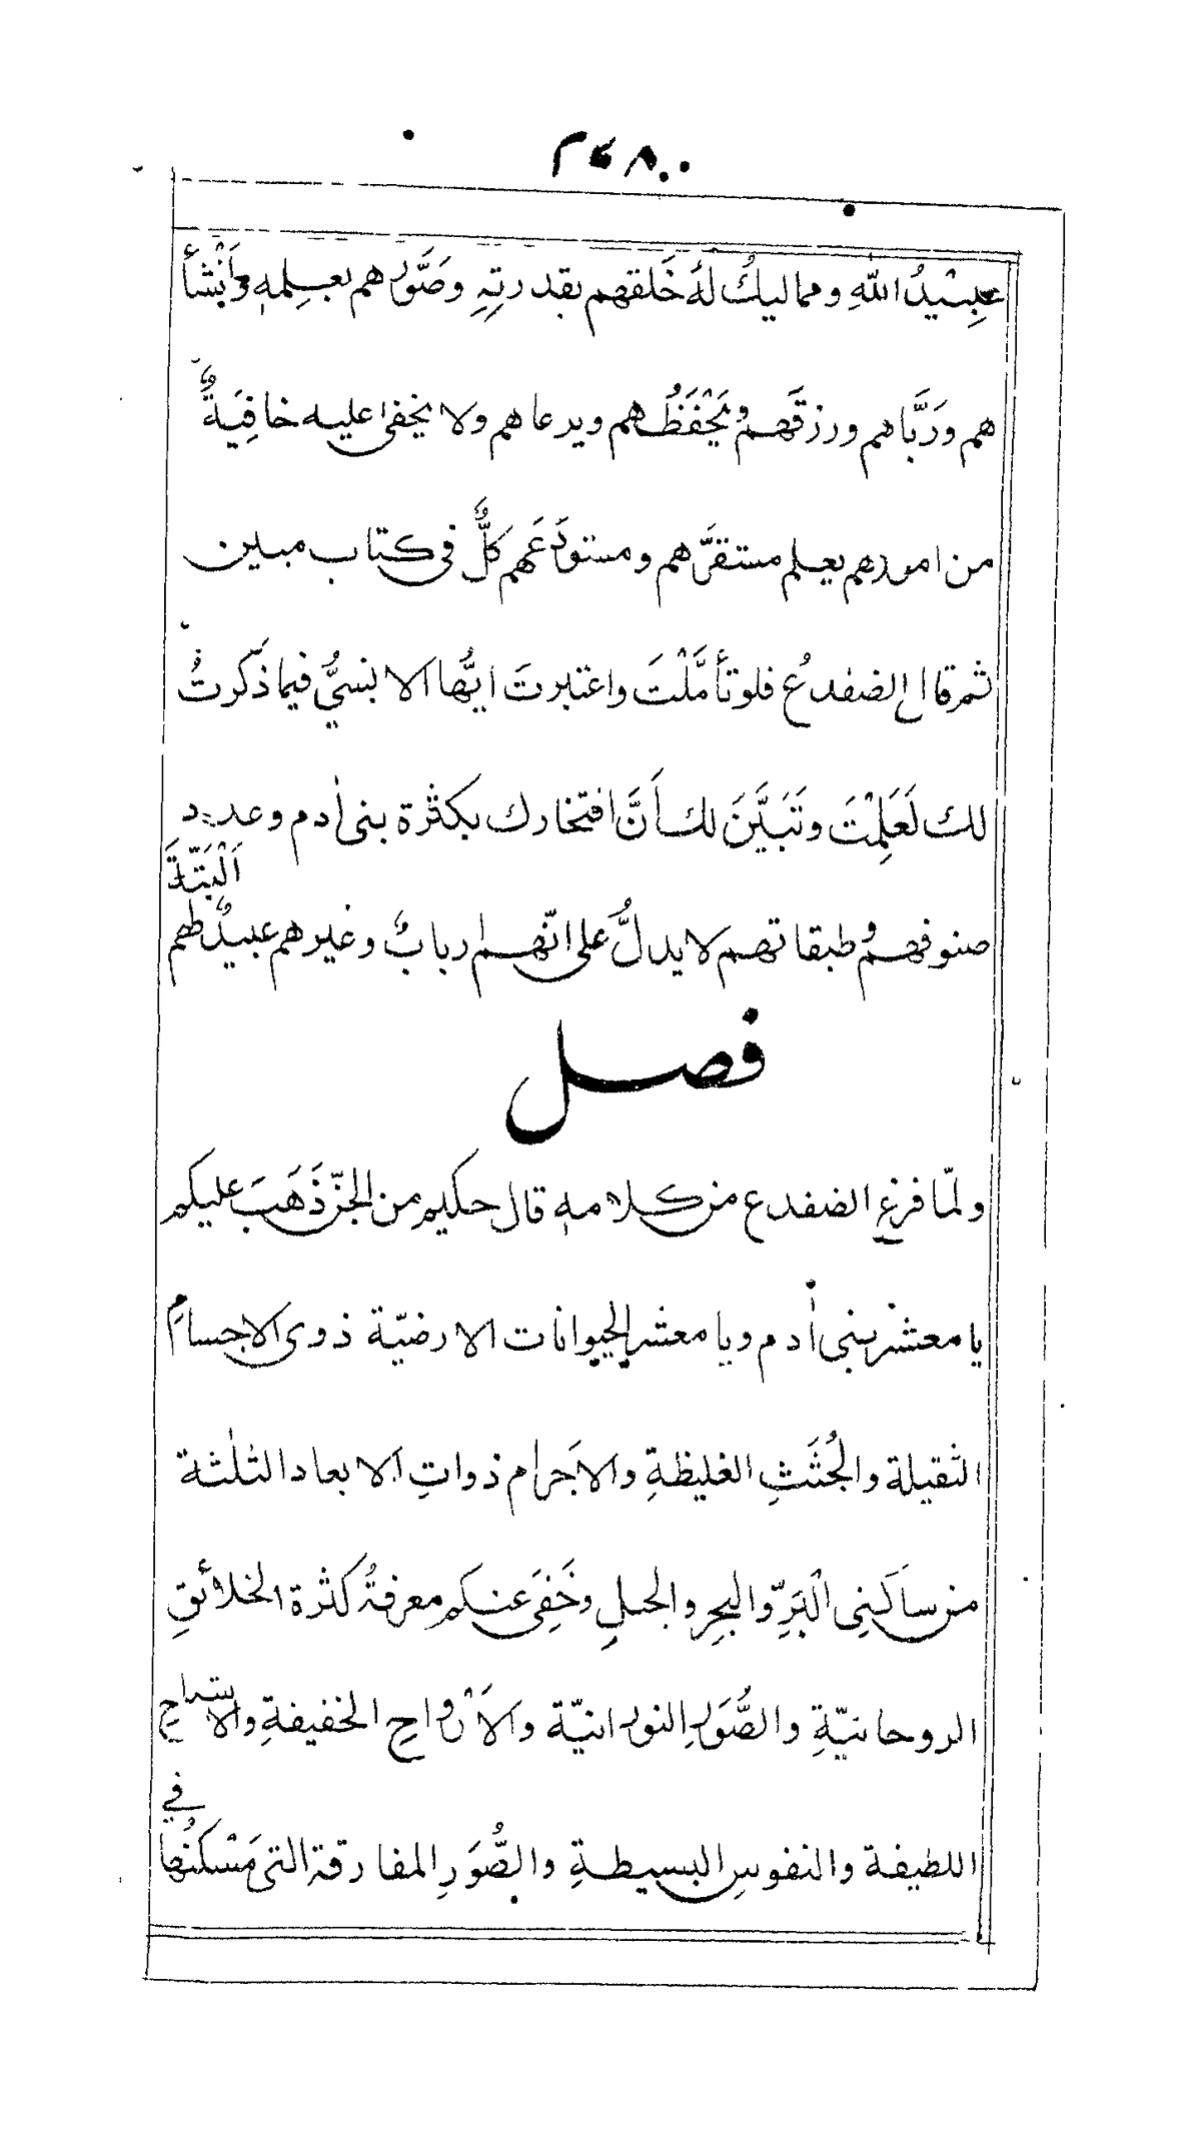 عبيْدُ اللّهِ ومماليكُ لهُ خَلقهم بقدرتِهِ وصَوَّرهم بعلِمهٖ وَأنْشأ
هم ورَبَّاهم ورزقَهم ويَحْفَظُهم ويرعاهم ولا يخفى عليه خافِيَةٌ
من امورهم يعلم مستقرَّهم ومستودَعَهم كلٌّ فى كتاب مبين
ثم قال الضفدعُ فلو تأمَّلْتَ واعتبرتَ ايُّها الانسيُّ فيما ذَكرتُ
لك لَعَلِمْتَ وتَبَيَّنَ لك أَنَّ افتخارك بكثرة بنى اٰدم وعديد
صنوفهم وطبقاتهم لا يدلُّ على انّهم اربابٌ وغيرهم عبيدٌ لهم اَلْبَتَّةَ
فصل
ولمّا فرغ الضفدع من كلامهٖ قال حكيم من الجنّ ذَهَبَ عليكم
يا معشر بنى اٰدم ويا معشر الحيوانات الارضيّة ذوى الاجسامِ
الثقيلة والجُثَثِ الغليظةِ والاَجرام ذواتِ الابعاد الثلٰثة
من ساكنِى الْبَرِّ والبحرِ والجبلِ وخَفِىَ عنكم معرفةُ كثرة الخلائقِ
الروحانيّةِ والصُّوَرِ النورانيّة والاَرْواحِ الخفيفةِ والاشباح
اللطيفة والنفوسِ البسيطةِ والصُّوَرِ المفارقة التى مَسْكنُها فى